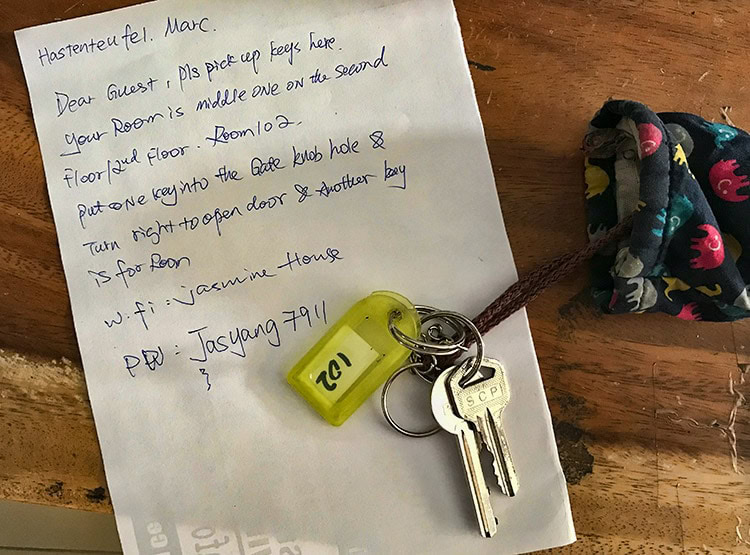 Hastenteufel. Marc.
Dear Guest, pls pick up keys here.
Your Room is middle one on the second
floor/2nd floor. Room 102.
put one key into the Gate knob hole &
Turn right to open door & Another key
is for Room
wifi: jasmine House
PW: Jasyang7911
102
SCPI